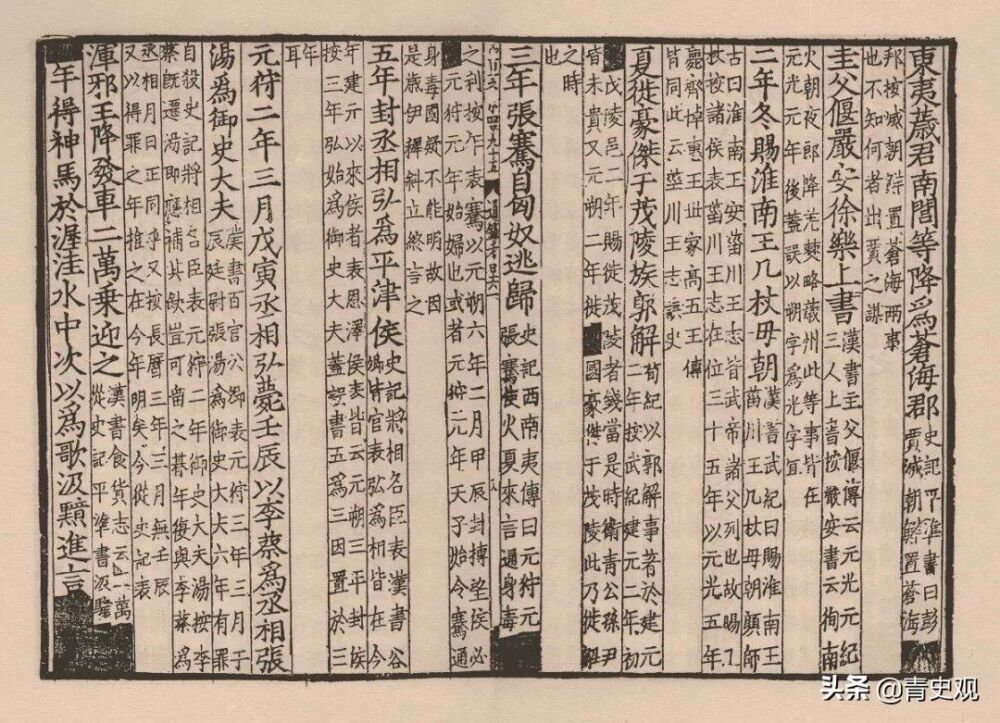 東夷薉君南閭等降爲蒼海郡
史記平準書曰彭
賈滅朝鮮置蒼海
邦按滅朝鮮置蒼海兩事
也不知何者出賈之謀
主父偃嚴安徐樂上書
漢書主父偃傳云元光元紀
三人上書按嚴安書云徇南
火朝夜郎降羌僰略薉州此等事皆在
元光元年後蓋誤以朔字爲光字耳
二年冬賜淮南王几杖毋朝
漢書武紀曰賜淮南王
菑川王几杖毋朝顔師
古曰淮南王安菑川王志皆武帝諸父列也故賜几
杖按諸侯表菑川王志在位三十五年以元光五年
薨齊悼惠王世家高五王傳
皆同此云菑川王志誤史
夏徙豪傑于茂陵族郭解
荀紀以郭解事著於建元
二年按武紀建元二年初
茂陵邑二年賜徙茂陵者錢當是時衛青公孫尹
皆未貴又元朔二年徙國豪傑于茂陵此乃徙解
之時
也
三年張騫自匈奴逃歸
史記西南夷傳曰元狩元
張騫使大夏來言通身毒
之利按年表騫以元朔六年二月甲辰封博望侯必
元狩元年始歸也或者元狩元年天子始令騫通
身毒國疑不能明故因
是歲伊稚斜立終言之
五年封丞相弘爲平津侯
史記將相名臣表漢書公
卿百官表弘爲相皆在今
年建元以來侯者表恩澤侯表皆云元朔三年封侯
按三年弘始爲御史大夫蓋誤書五爲三因置於三
年
耳
元狩二年三月戊寅丞相弘薨壬辰以李蔡爲丞相張
湯爲御史大夫
漢書百官公卿表元狩三年三月壬
辰廷尉張湯爲御史大夫六年有罪
自殺史記將相名臣表元狩二年御史大夫湯按李
蔡既遷湯即應補其缺豈可留之朞年復與李蔡爲
丞相月日正同乎又按長曆三年三月無壬辰
又以得罪之年推之在今年明矣今從史記表
渾邪王降發車二萬乘迎之
漢書食貨志云二萬
從史記平準書汲黯
年得神馬於渥洼水中次以爲歌汲黯進言
头条 @青史观